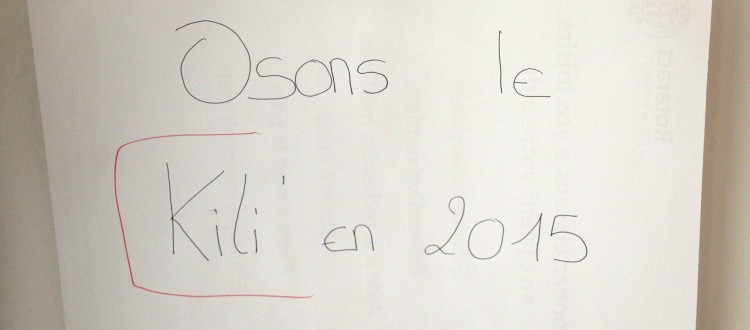 Osons le
Kili' en 2015
Rotaract